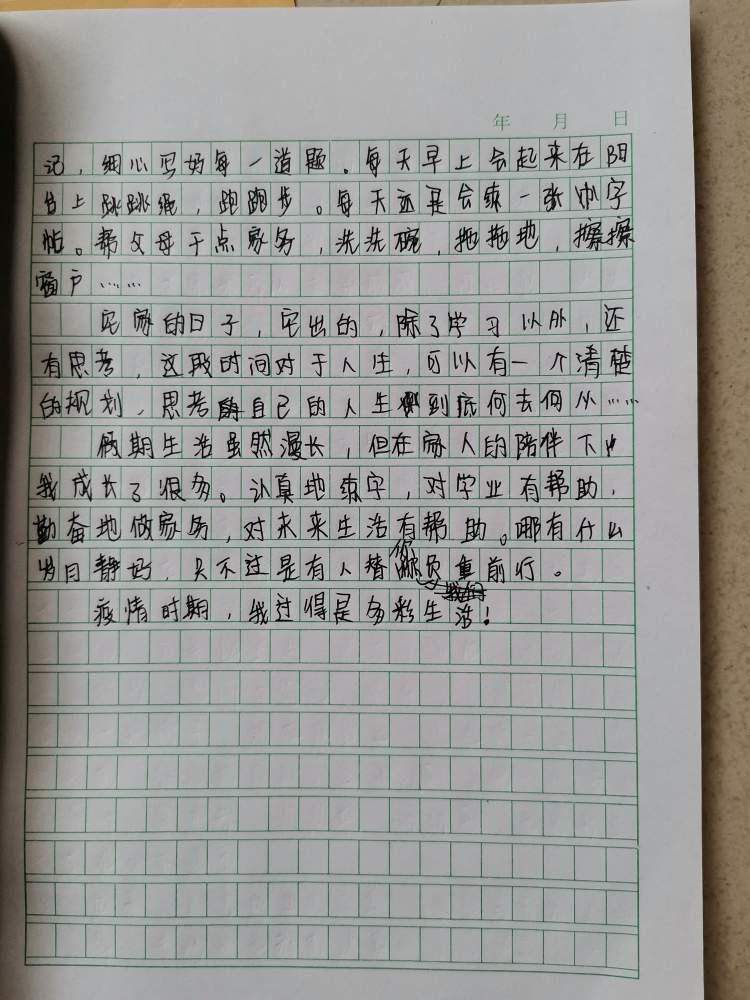 年 月 日
记，细心写好每一道题。每天早上会起来在阳
台上跳跳绳，跑跑步。每天还是会练一张小字
帖。帮父母干点家务，洗洗碗，拖拖地，擦擦
窗户……
宅家的日子，宅出的，除了学习以外，还
有思考，这段时间对于人生，可以有一个清楚
的规划，思考自己的人生到底何去何从……
假期生活虽然漫长，但在家人的陪伴下，
我成长了很多。认真地练字，对学业有帮助，
勤奋地做家务，对未来生活有帮助。哪有什么
岁月静好，只不过是有人替你负重前行。
疫情时期，我过得是多彩生活！